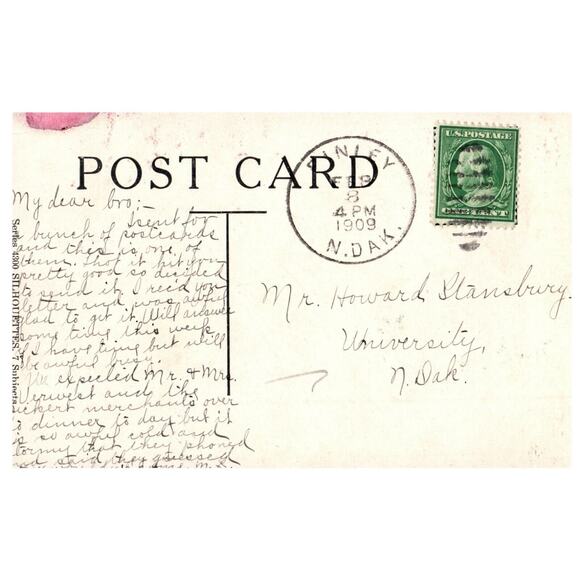 POST CARD
FINLEY
FEB
8
4 PM
1909
N. DAK.
U.S. POSTAGE
Series 4200 SILHOUETTES, 7 Subjects
My dear bro; –
I sent for
a bunch of postcards
and this is one of
them. Thot it hit you
pretty good so decided
to send it. I rec'd your
letter and was awful
glad to get it. Will answer
some time this week
if I have time but will
be awful busy.
We expected Mr. & Mrs.
Verwest and the
merchants over
to dinner to day but it
is so awful cold and
stormy that they phoned
and said they guessed
Mr. Howard Stansbury.
University,
N. Dak.